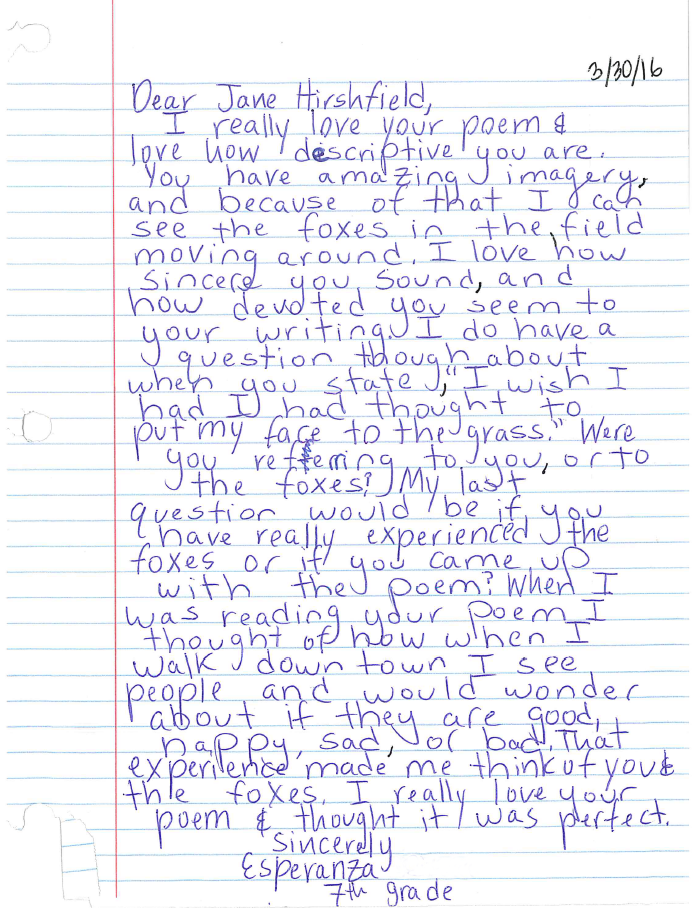 3/30/16
Dear Jane Hirshfield,
I really love your poem &
love how descriptive you are.
You have amazing imagery,
and because of that I can
see the foxes in the field
moving around. I love how
sincere you sound, and
how devoted you seem to
your writing. I do have a
question though about
when you state, "I wish I
had I had thought to
put my face to the grass." Were
you refferring to you, or to
the foxes? My last
question would be if you
have really experienced the
foxes or if you came up
with the poem? When I
was reading your poem I
thought of how when I
walk down town I see
people and would wonder
about if they are good,
happy, sad, or bad. That
experience made me think of you &
the foxes. I really love your
poem & thought it was perfect.
Sincerely
Esperanza
7th grade